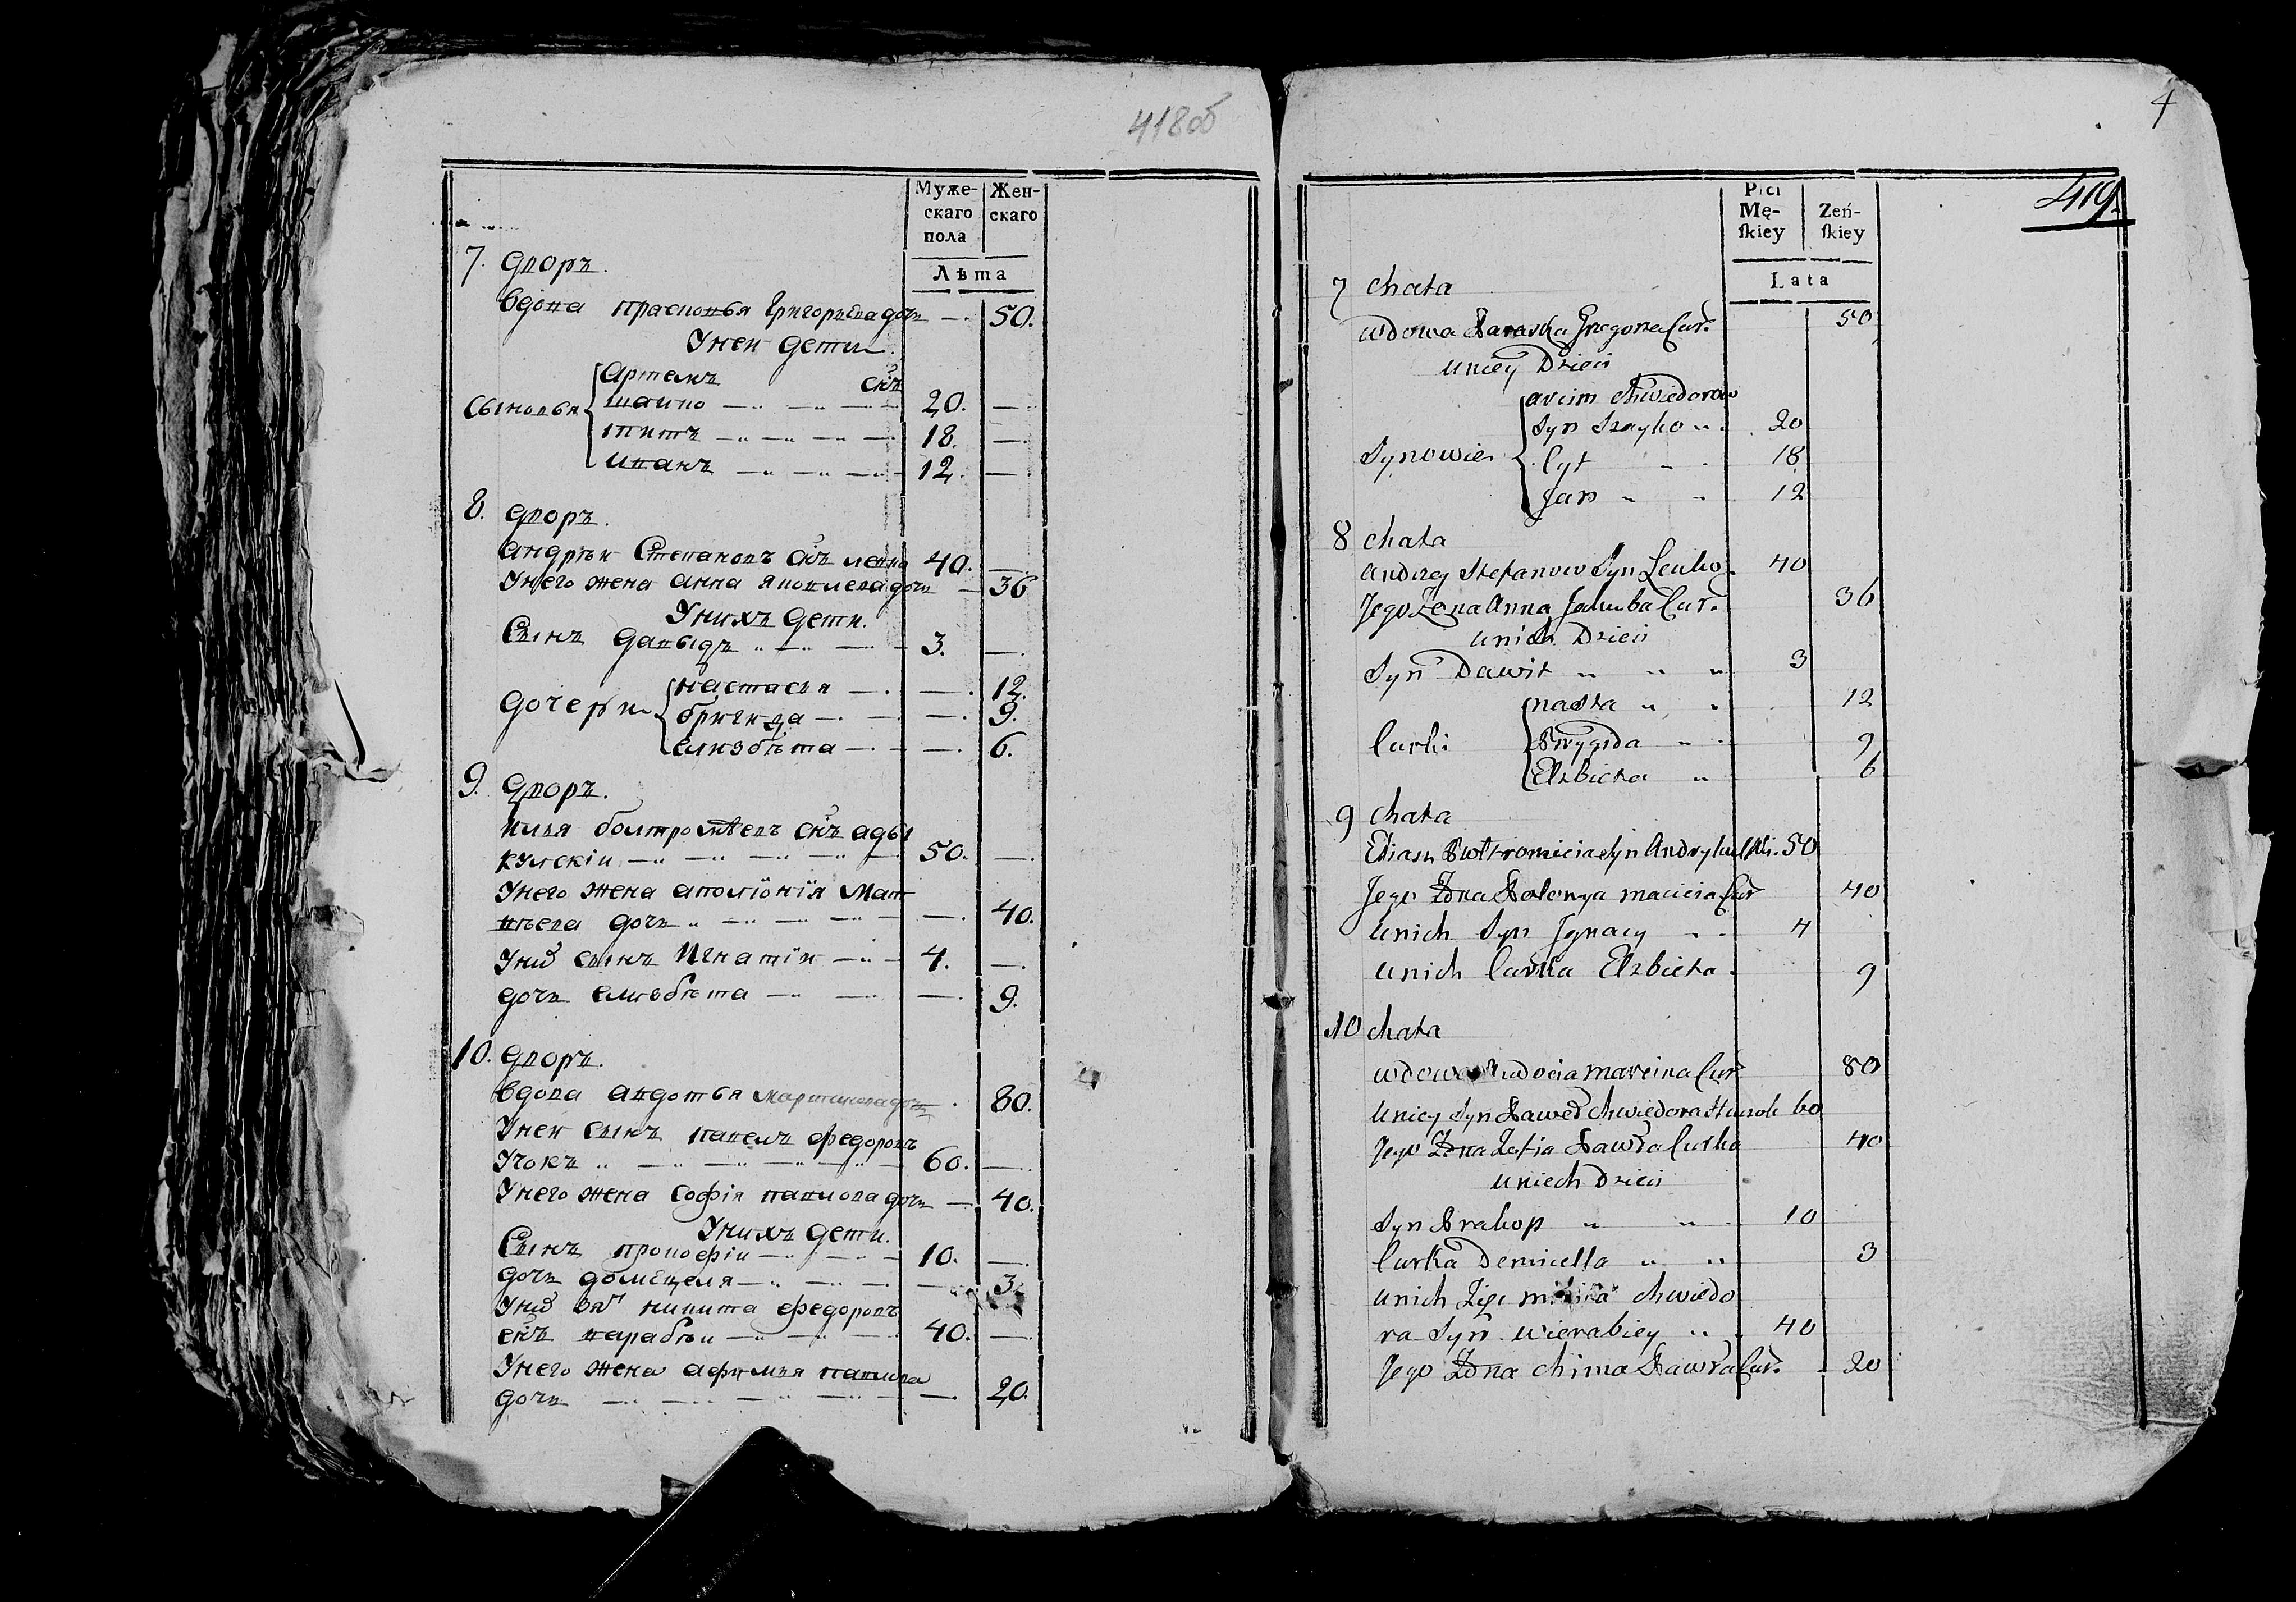 418об
Муже-
скаго
пола
Жен-
скаго
Лѣта
7. Дворъ.
Вдова прасковья Григорьева дочь — 50.
Унеи дети
Сыновья
Артемъ снъ
шаико — 20. —
титъ — 18. —
иванъ — 12. —
8. Дворъ.
Андрѣи Степановъ снъ левко 40. —
Унего жена анна яковлева дочь — 36
Унихъ дети.
Сынъ давыдъ — 3. —
Дочери
настасья — 12.
бригида — 9.
елизбѣта — 6.
9. Дворъ.
илья болтромѣевъ снъ анды
кумскіи — 50. —
Унего жена аполіонія Мат
вѣева дочь — 40.
Уни сынъ Игнатіи — 4. —
дочь елизбѣта — 9.
10. Дворъ.
Вдова авдотья мартинова дочь 80.
Унеи сынъ павелъ федоровъ
— 60. —
Унего жена Софія павлова дочь — 40.
Унихъ дети.
Сынъ прокофіи — 10. —
дочь домицеля — 3.
Уни зят никита федоровъ
снъ варабѣи — 40. —
Унего жена афимья павлова
дочь — 20.
4
419.
Pici
Mę-
ſkiey
Zeń-
ſkiey
Lata
7 chata
wdowa Paraska Gregorza Cur. 50
uniey Dzieci
Synowie
arcim chwiedorow
Syn Szayko 20
Cyt 18
Jan 12
8 chata
Andrzey Stefanow Syn Lewko 40
Jego Żona Anna Jakuba Cur. 36
unich Dzieci
Syn Dawit 3
Curki
nasta 12
Brygida 9
Elzbieta 6
9 chata
Eliasz Bołtromieia Syn 50
Jego Żona Polonya macieia Cur 40
unich Syn Ignacy 4
unich Curka Elzbieta 9
10 chata
wdowa Awdocia marcina Cur 80
uniey Syn Paweł chwiedora 60
Jego Żona Zofia Pawła Curka 40
uniech Dzieci
Syn Prakop 10
Curka Demicella 3
unich Zięć chwiedo
ra Syn wierabiey 40
Jego Żona chima Pawła Cur. 20